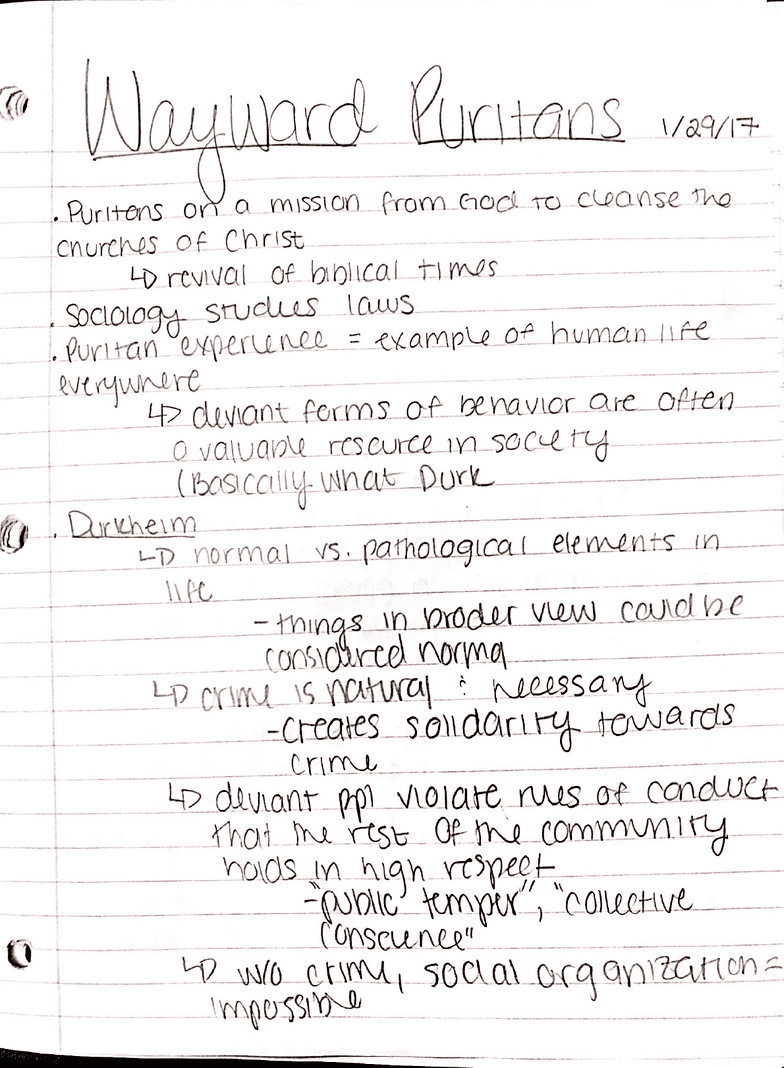 Wayward Puritans 1/29/17
. Puritens on a mission from God to cleanse the
churches of Christ
↳ revival of biblical times
. Sociology studies laws
. Puritan experience = example of human life
everywhere
↳ deviant forms of behavior are often
a valuable resource in society
(Basically what Durk
. Durkheim
↳ normal vs. pathological elements in
life
- things in broder view could be
considered norma
↳ crime is natural & necessary
- creates solidarity towards
crime
↳ deviant ppl violate rules of conduct
that the rest of the community
holds in high respect
- "public temper", "collective
conscience"
↳ w/o crime, social organization =
impossible